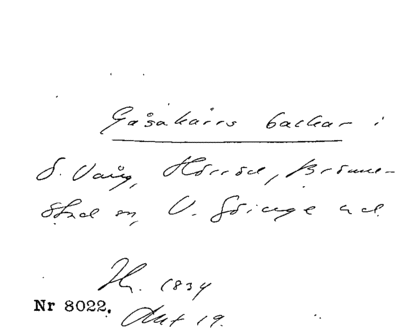 Gåsakärrs backar i
S. Vång, Hörröd, Bröne-
stad m, V. Göinge hd.
Th. 1834
Nr 8022. Akt 19.